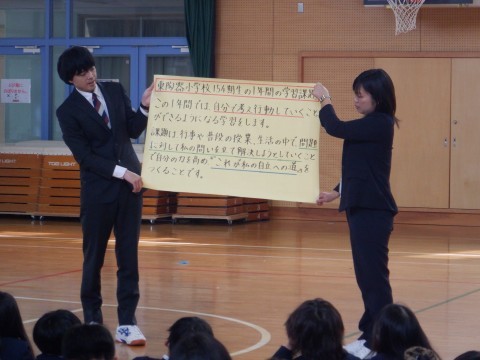 東陶器小学校154期生の1年間の学習課題
この1年間では自分で考え行動していくこと
ができるようになる学習をします。
課題は、行事や普段の授業、生活の中で問題
に対して私の問いを立て解決しようとしていくこと
で自分の力を高め"これが私の自立への道"を
つくることです。
TOEI LIGHT